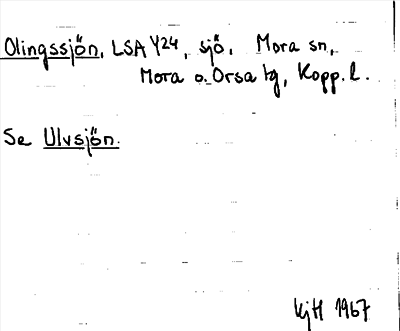 Olingssjön, LSA Y24, sjö. Mora sn,
Mora o. Orsa tg, Kopp. l.
Se Ulvsjön.
KjH 1967